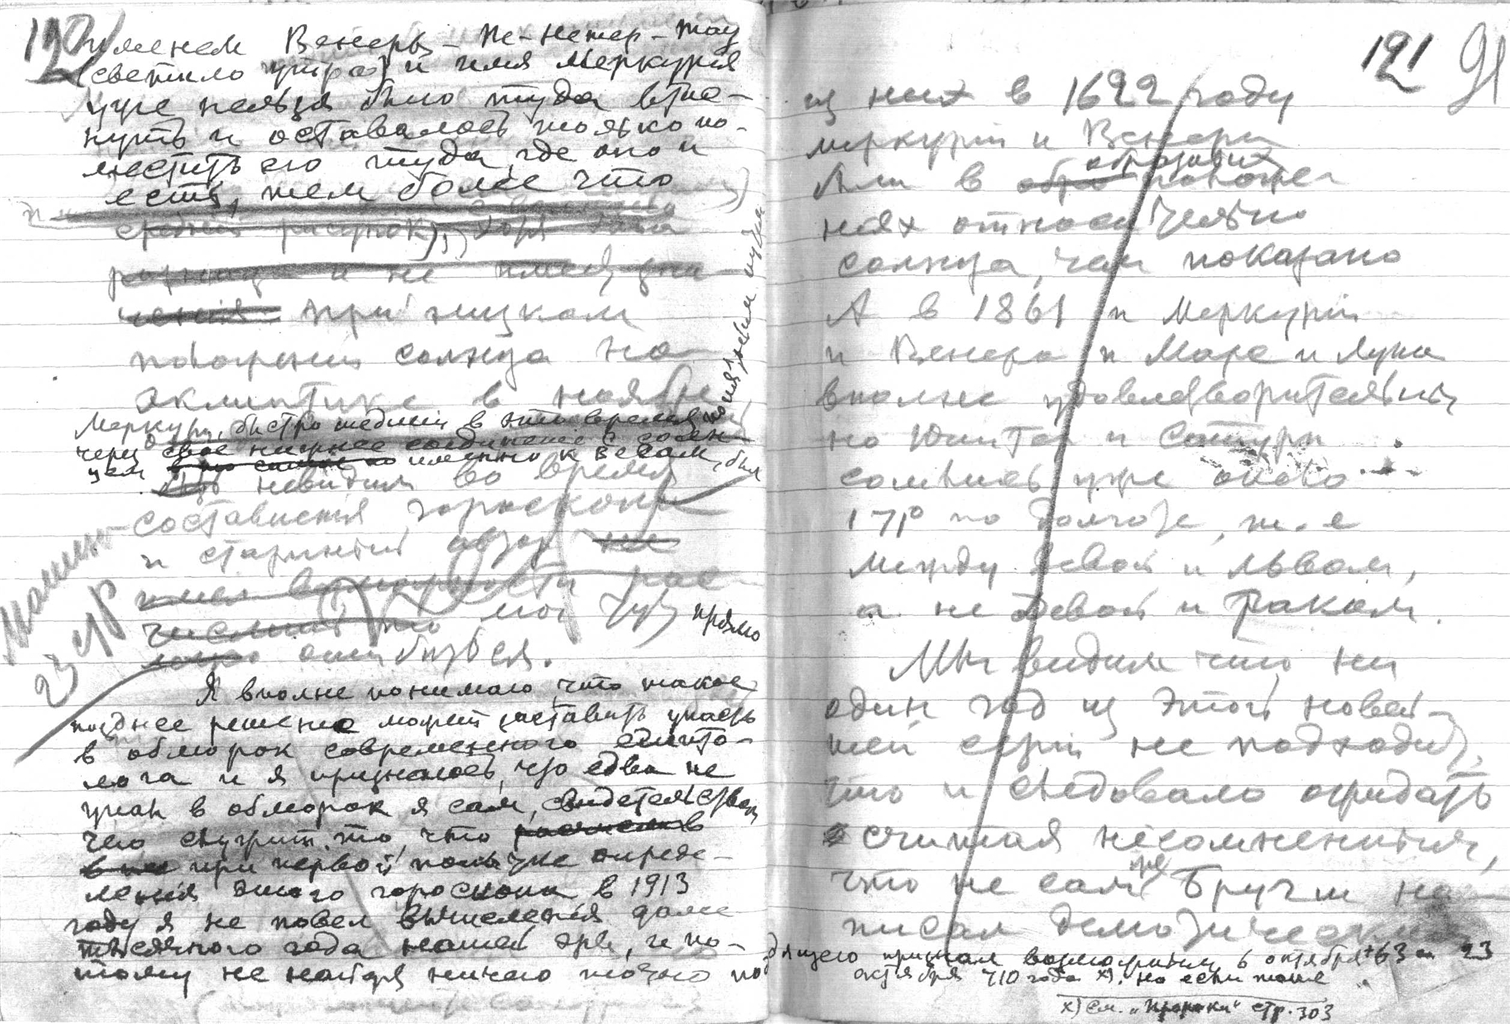 120
именем Венеры - Пе-Нетер-Тау
(светило утра) и имя Меркурия
уже нельзя было туда втис-
нуть и оставалось только по-
местить его туда, где оно и
есть, тем более что
средний рисунок),
и не имея зна-
чения при низком
положении солнца на
эклиптике в ноябре
Меркурий, быстро шедший в это время
через свое нижнее соединение с солн-
цем именно к Весам, был
невидим во время
составления гороскопа
и старинный автор не
мог тут прямо
ошибиться.
Я вполне понимаю что такое
позднее решение может заставить упасть
в обморок современного египто-
лога и я признаюсь, что едва не
упал в обморок я сам, свидетельством
чего служит то, что
при первой попытке опреде-
ления этого гороскопа в 1913
году я не повел вычисления далее
тысячного года нашей эры, и по-
тому не найдя ничего точно по-
121
91
из них в 1622 году
Меркурий и Венера
были в обратных положе-
ниях относительно
солнца, чем показано
А в 1861 и Меркурий
и Венера и Марс и Луна
вполне удовлетворительны
но Юпитер и Сатурн
сошлись уже около
171° по долготе, т. е
между Девой и Львом,
а не Девой и Раком.
Мы видим что ни
один год из этой новей-
шей серии не подходит,
что и следовало ожидать
считая несомненным,
что не сам же Бругш на-
писал демотические
дящего признал возможными 6 октября +63 и 23
октября 410 года х). но если тоже
х) См. "Пророки" стр. 303